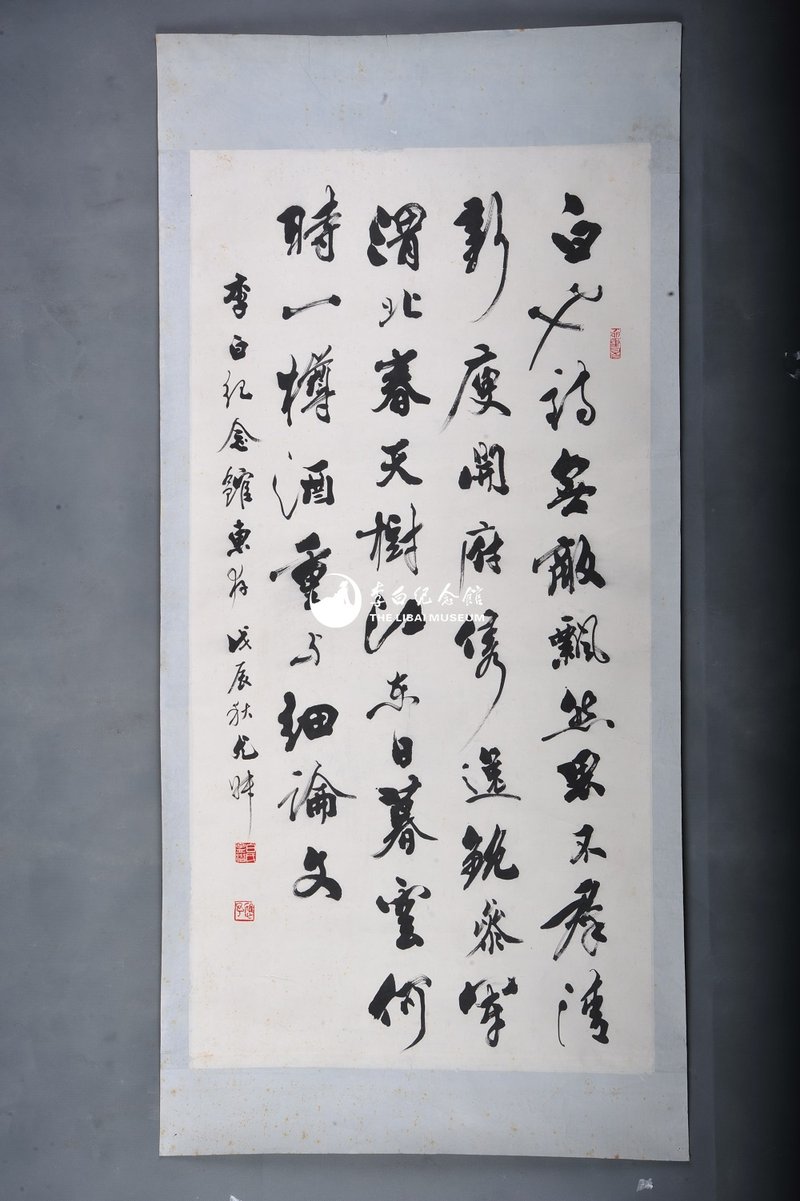 白也詩無敵飄然思不群清
新庾開府俊逸鮑參軍
渭北春天樹江東日暮雲何
時一樽酒重与細論文
李白纪念館惠存 戊辰秋
李白纪念館
THE LIBAI MUSEUM